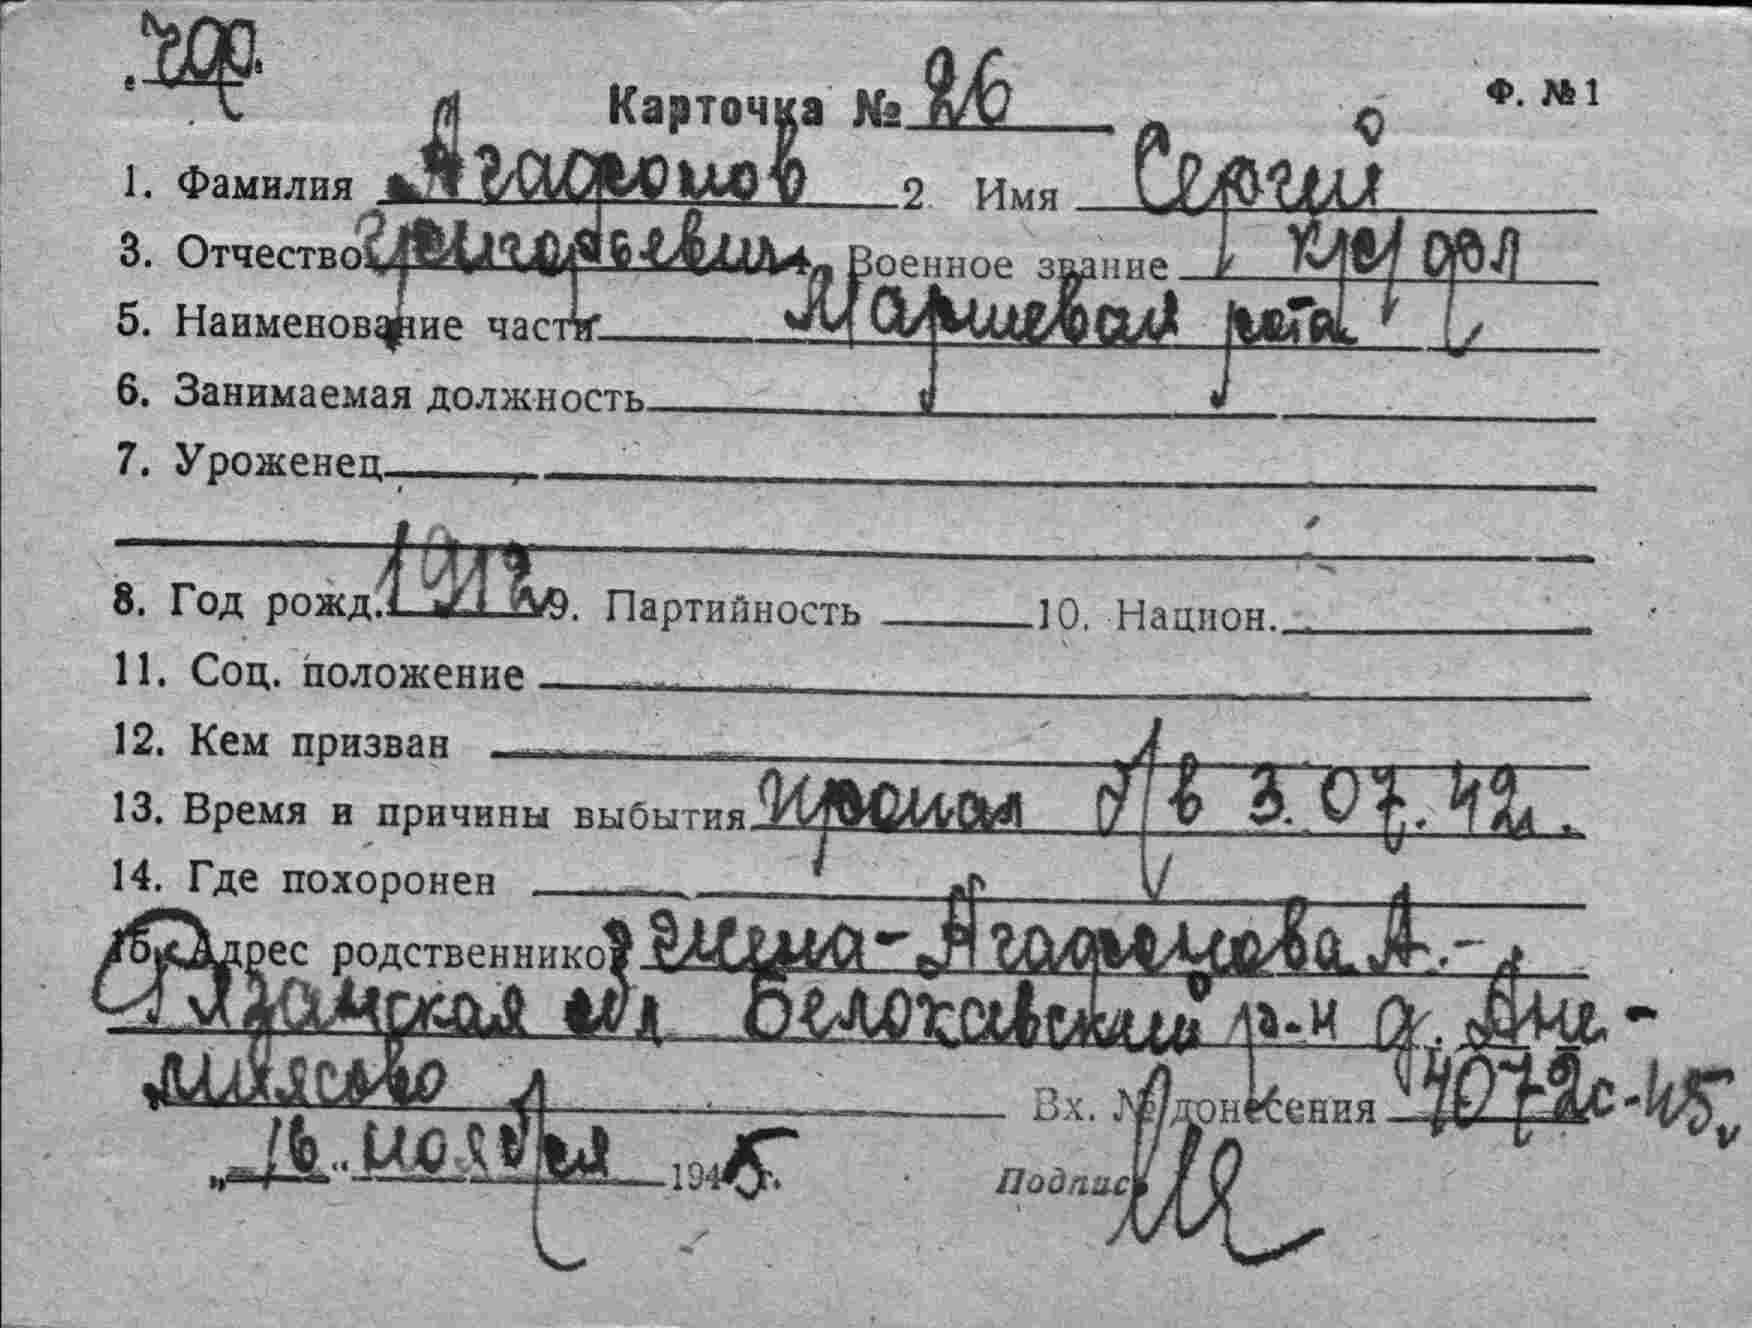 Карточка № 26 Ф. № 1
1. Фамилия Агафонов 2 Имя Сергей
3. Отчество Григорьевич Военное звание кр-ц
5. Наименование части Маршевая рота
6. Занимаемая должность
7. Уроженец
8. Год рожд. 1912 9. Партийность 10. Национ.
11. Соц. положение
12. Кем призван
13. Время и причины выбытия пропал б/в 3.07.42г.
14. Где похоронен
15. Адрес родственников жена - Агафонова А. -
Рязанская обл Белоха́вский р-н д.
Вх. № донесения 4072с-45
„16“ ноября 1945.
Подпись